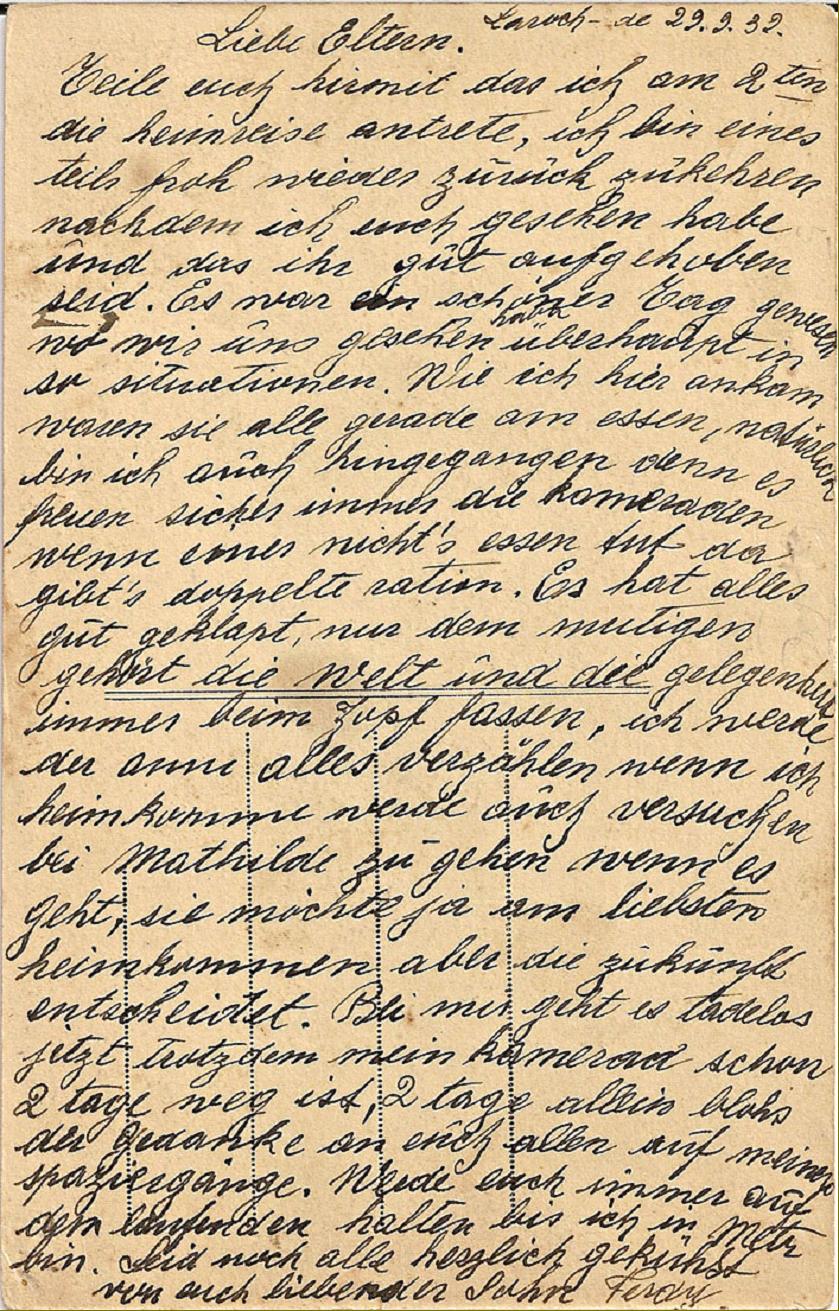 Laroch-de 29.9.39.
Liebe Eltern.
Teile euch hirmit das ich am 2ten
die heimreise antrete, ich bin eines
teils froh wieder zurück zukehren
nachdem ich euch gesehen habe
und das ihr gut aufgehoben
seid. Es war ein schöner Tag gewesen
wo wir uns gesehen habn überhaupt in
so situationen. Wie ich hier ankam
waren sie alle gerade am essen, natürlich
bin ich auch hingegangen denn es
freuen sicher immer die kameraden
wenn einer nicht's essen tut da
gibt's doppelte ration. Es hat alles
gut geklapt, nur dem mutigen
gehört die welt und die gelegenheit
immer beim Zopf fassen, ich werde
der anni alles verzählen wenn ich
heimkomme werde auch versuchen
bei Mathilde zu gehen wenn es
geht, sie möchte ja am liebsten
heimkommen aber die zukunft
entscheidet. Bei mir geht es tadelos
jetzt trotzdem mein kamerad schon
2 tage weg ist, 2 tage allein blohs
der gedanke an euch allen auf meinen
spaziergänge. Werde euch immer auf
dem laufenden halten bis ich in Metz
bin. Seid noch alle herzlich gekühst
von euch liebender Sohn Ferdy